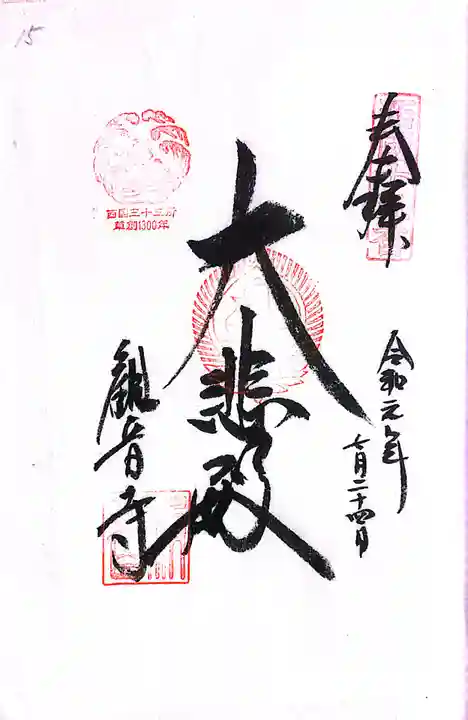 15
奉拝
令和元年
七月二十四日
大悲殿
西国三十三所
草創1300年
観音寺